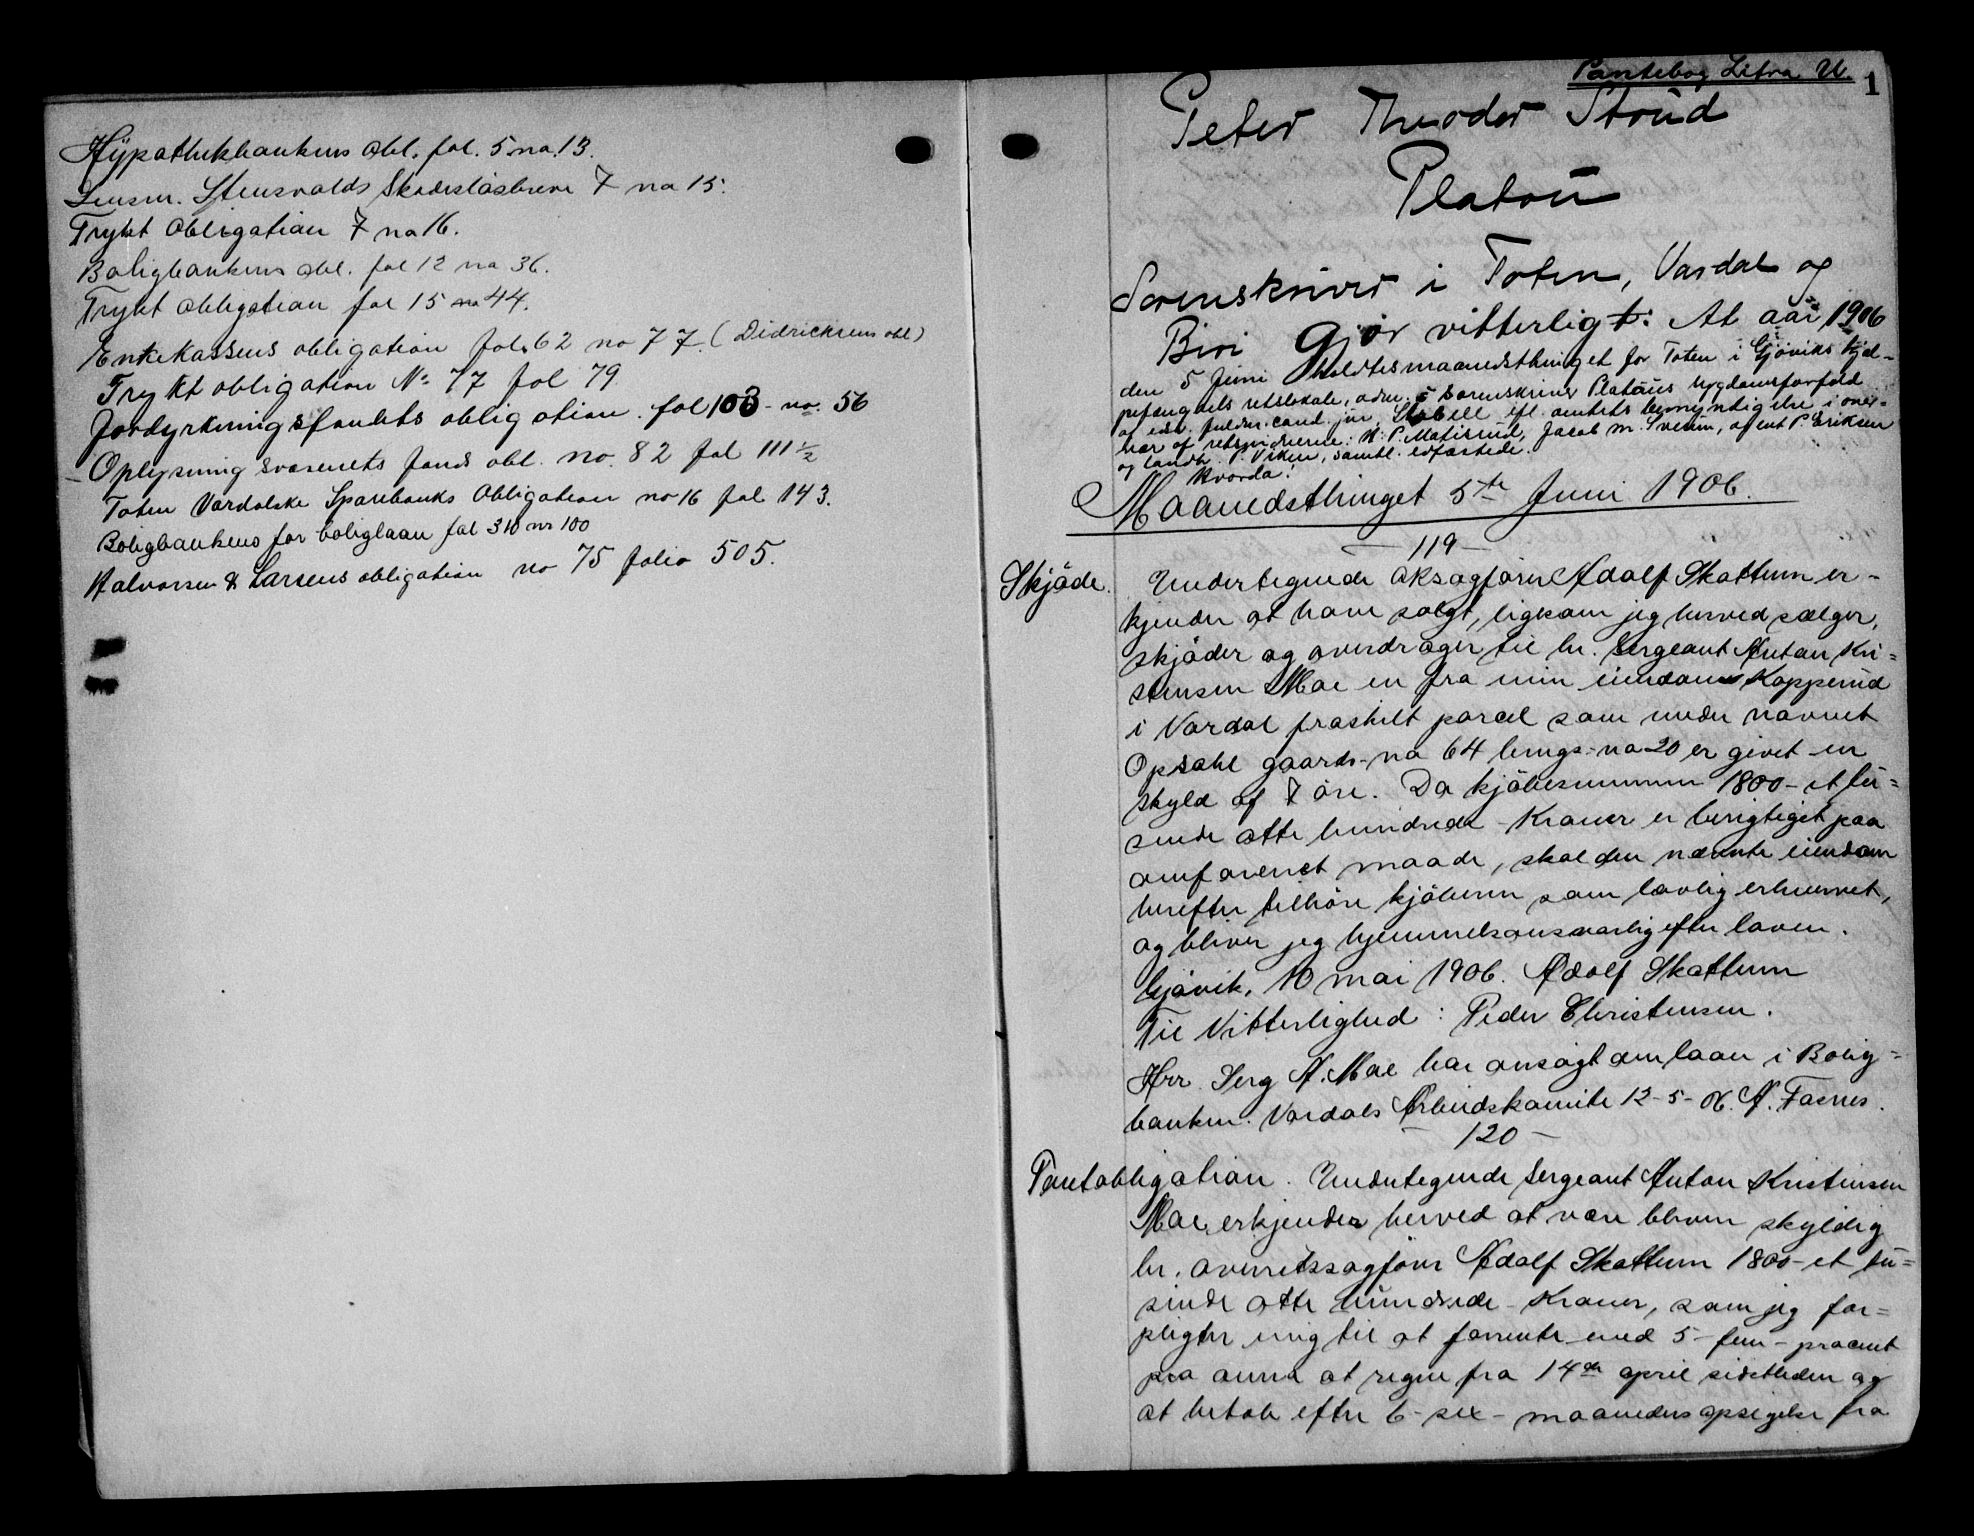 Hypothekbankens obl. fol. 5 no. 13.
Lensm. Stensvolds Skadesløsbreve 7 no 15.
Trykt Obligation 7 no 16.
Boligbankens obl. fol 12 no 36.
Trykt obligation fol 15 no 44.
Enkekassens obligation fol. 62 no 77. (Didrichsens obl)
Trykt obligation No 77 fol 79
Jordyrkningsfondets obligation. fol 103 - no. 56
Oplysningsvæsenets fonds obl. no. 82 fol 111 1/2
Toten Vardalske Sparebanks Obligation no 16 fol 143.
Boligbankens for boliglaan fol 310 nr 100
Halvorsen & Larsens obligation no 75 folio 505.
Pantebog Litra U. 1
Peter Theodor Strud
Platou
Sorenskriver i Toten, Vardal og
Biri Gjør vitterligt: At aar 1906
den 5 Juni holdtes maanedsthinget for Toten i Gjøviks hjel-
pefængsels retslokale, adm. i Sorenskriver Platous lygdomsforfald
af edsv. fuldm. cand. jur. Stabell ifl. amtets bemyndigelse i over-
vær af retsvidnerne: H. P. Matisrud, Jacob M. Sveum, agent P. Eriksen
og landh. P. Viken, samtl. edfæstede.
Hvorda:
Maanedsthinget 5te Juni 1906.
- 119 -
Skjøde. Undertegnede oksagfører Adolf Skattum er-
kjender at have solgt, ligesom jeg herved sælger,
skjøder og overdrager til hr. Sergeant Anton Kri=
stensen Moe en fra min eiendom Kopperud
i Vardal fraskilt parcel som under navnet
Opsahl gaards-no 64 brugs-no 20 er givet en
skyld af 7 øre. Da kjøbesummen 1800 - et tu=
sende otte hundrede - Kroner er berigtiget paa
omforenet maade, skal den nævnte eiendom
herefter tilhøre kjøberen som lovlig erhvervet,
og bliver jeg hjemmelsansvarlig efter loven.
Gjøvik, 10 mai 1906. Adolf Skattum
Til Vitterlighed: Peder Christensen.
Hrr. Serg A. Moe har ansøgt om laan i Bolig=
banken. Vardals Arbeidskomite 12-5-06. A. Fasnes.
- 120 -
Pantobligation. Undertegnede Sergeant Anton Kristensen
Moe, erkjender herved at være bleven skyldig
hr. Overretssagfører Adolf Skattum 1800 - et tu=
sinde otte hundrede - Kroner, som jeg for=
pligter mig til at forrente med 5 - fem - procent
pro anno at regne fra 14de april sidstleden og
at betale efter 6 - sex - maaneders opsigelse fra